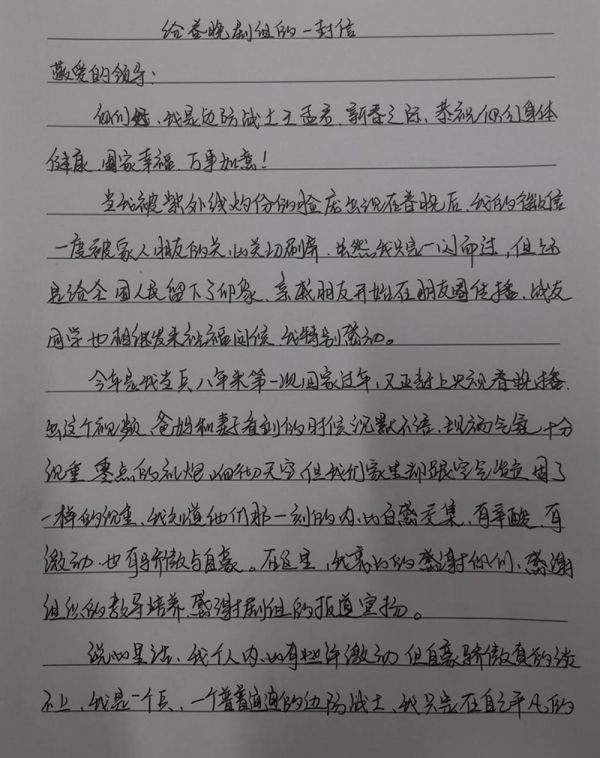 给春晚剧组的一封信
敬爱的领导：
你们好，我是边防战士王孟君，新春之际，恭祝你们身体
健康，阖家幸福，万事如意！
当我被紫外线灼伤的脸庞出现在春晚后，我的微信
一度被家人朋友的关心关切刷屏，虽然我只是一闪而过，但还
是给全国人民留下了印象，亲戚朋友开始在朋友圈传播，战友
同学也相继发来祝福问候，我特别感动。
今年是我当兵八年来第一次回家过年，又正赶上央视春晚播
出这个视频，爸妈和妻子看到的时候沉默不语，现场气氛十分
沉重，零点的礼炮响彻天空，但我们家里却跟空气凝固了
一样的沉重，我知道他们那一刻的内心百感交集，有辛酸，有
激动，也有骄傲与自豪。在这里，我衷心的感谢你们，感谢
组织的教导培养，感谢剧组的报道宣扬。
说心里话，我个人内心有些许激动，但自豪骄傲真的谈
不上，我是一个兵，一个普普通通的边防战士，我只是在自己平凡的